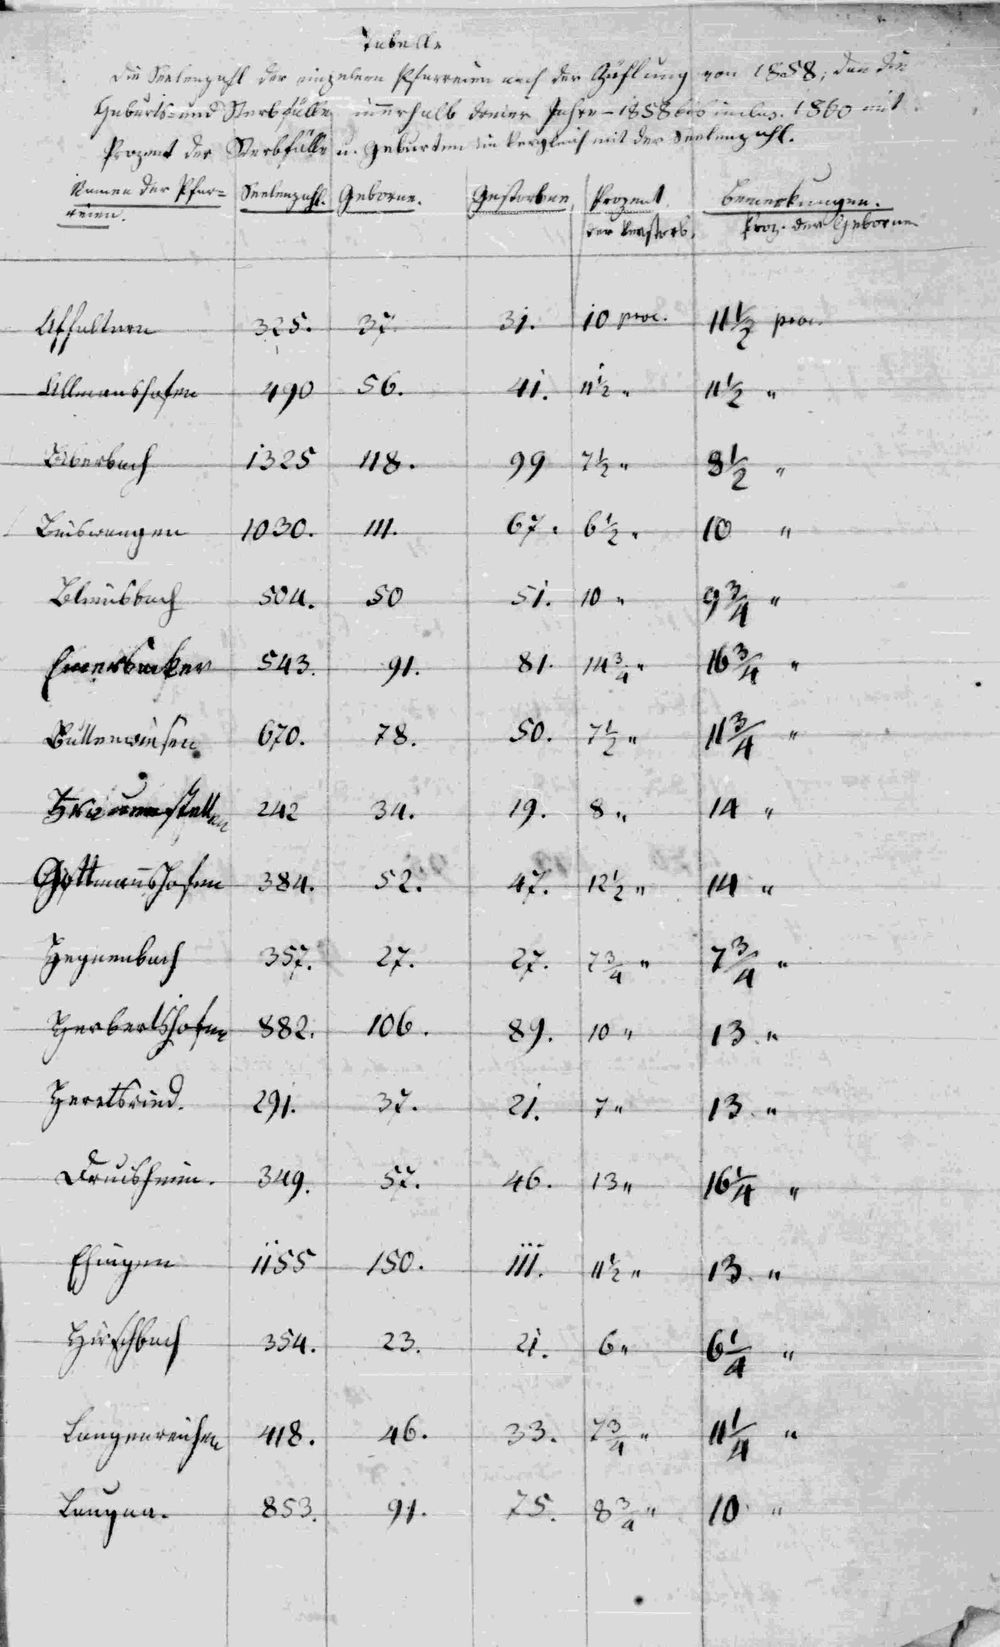 Tabelle
Die Seelenzahl der einzelnen Pfarreien nach der Zählung von 1858, dan die
Geburts- und Sterbfälle innerhalb dreier Jahre – 1858 bis inclus. 1860 mit
Prozent der Sterbfälle u. Geburten im Vergleich mit der Seelenzahl.
Namen der Pfar= Seelenzahl. Geborne. Gestorbne, Prozent Bemerkungen.
reien. der Verstorb. Proz. der Geborne
Affaltern 325. 37. 31. 10 proc. 11 1/2 proc.
Allmanshofen 490 56. 41. 11 1/2 " 11 1/2 "
Biberbach 1325 118. 99 7 1/2 " 8 1/2 "
Beiswangen 1030. 111. 67. 6 1/2 " 10 "
Bliensbach 504. 50 51. 10 " 9 3/4 "
Emersacker 543. 91. 81. 14 3/4 " 16 3/4 "
Buttenwiesen 670. 78. 50. 7 1/2 " 11 3/4 "
Frauenstetten 242 34. 19. 8 " 14 "
Gottmannshofen 384. 52. 47. 12 1/2 " 14 "
Hegnenbach 357. 27. 27. 7 3/4 " 7 3/4 "
Herbertshofen 882. 106. 89. 10 " 13. "
Heretsried. 291. 37. 21. 7 " 13. "
Druisheim. 349. 57. 46. 13 " 16 1/4 "
Ehingen 1155 150. 111. 11 1/2 " 13. "
Hirschbach 354. 23. 21. 6 " 6 1/4 "
Langenreichen 418. 46. 33. 7 3/4 " 11 1/4 "
Laugna. 853. 91. 75. 8 3/4 " 10 "